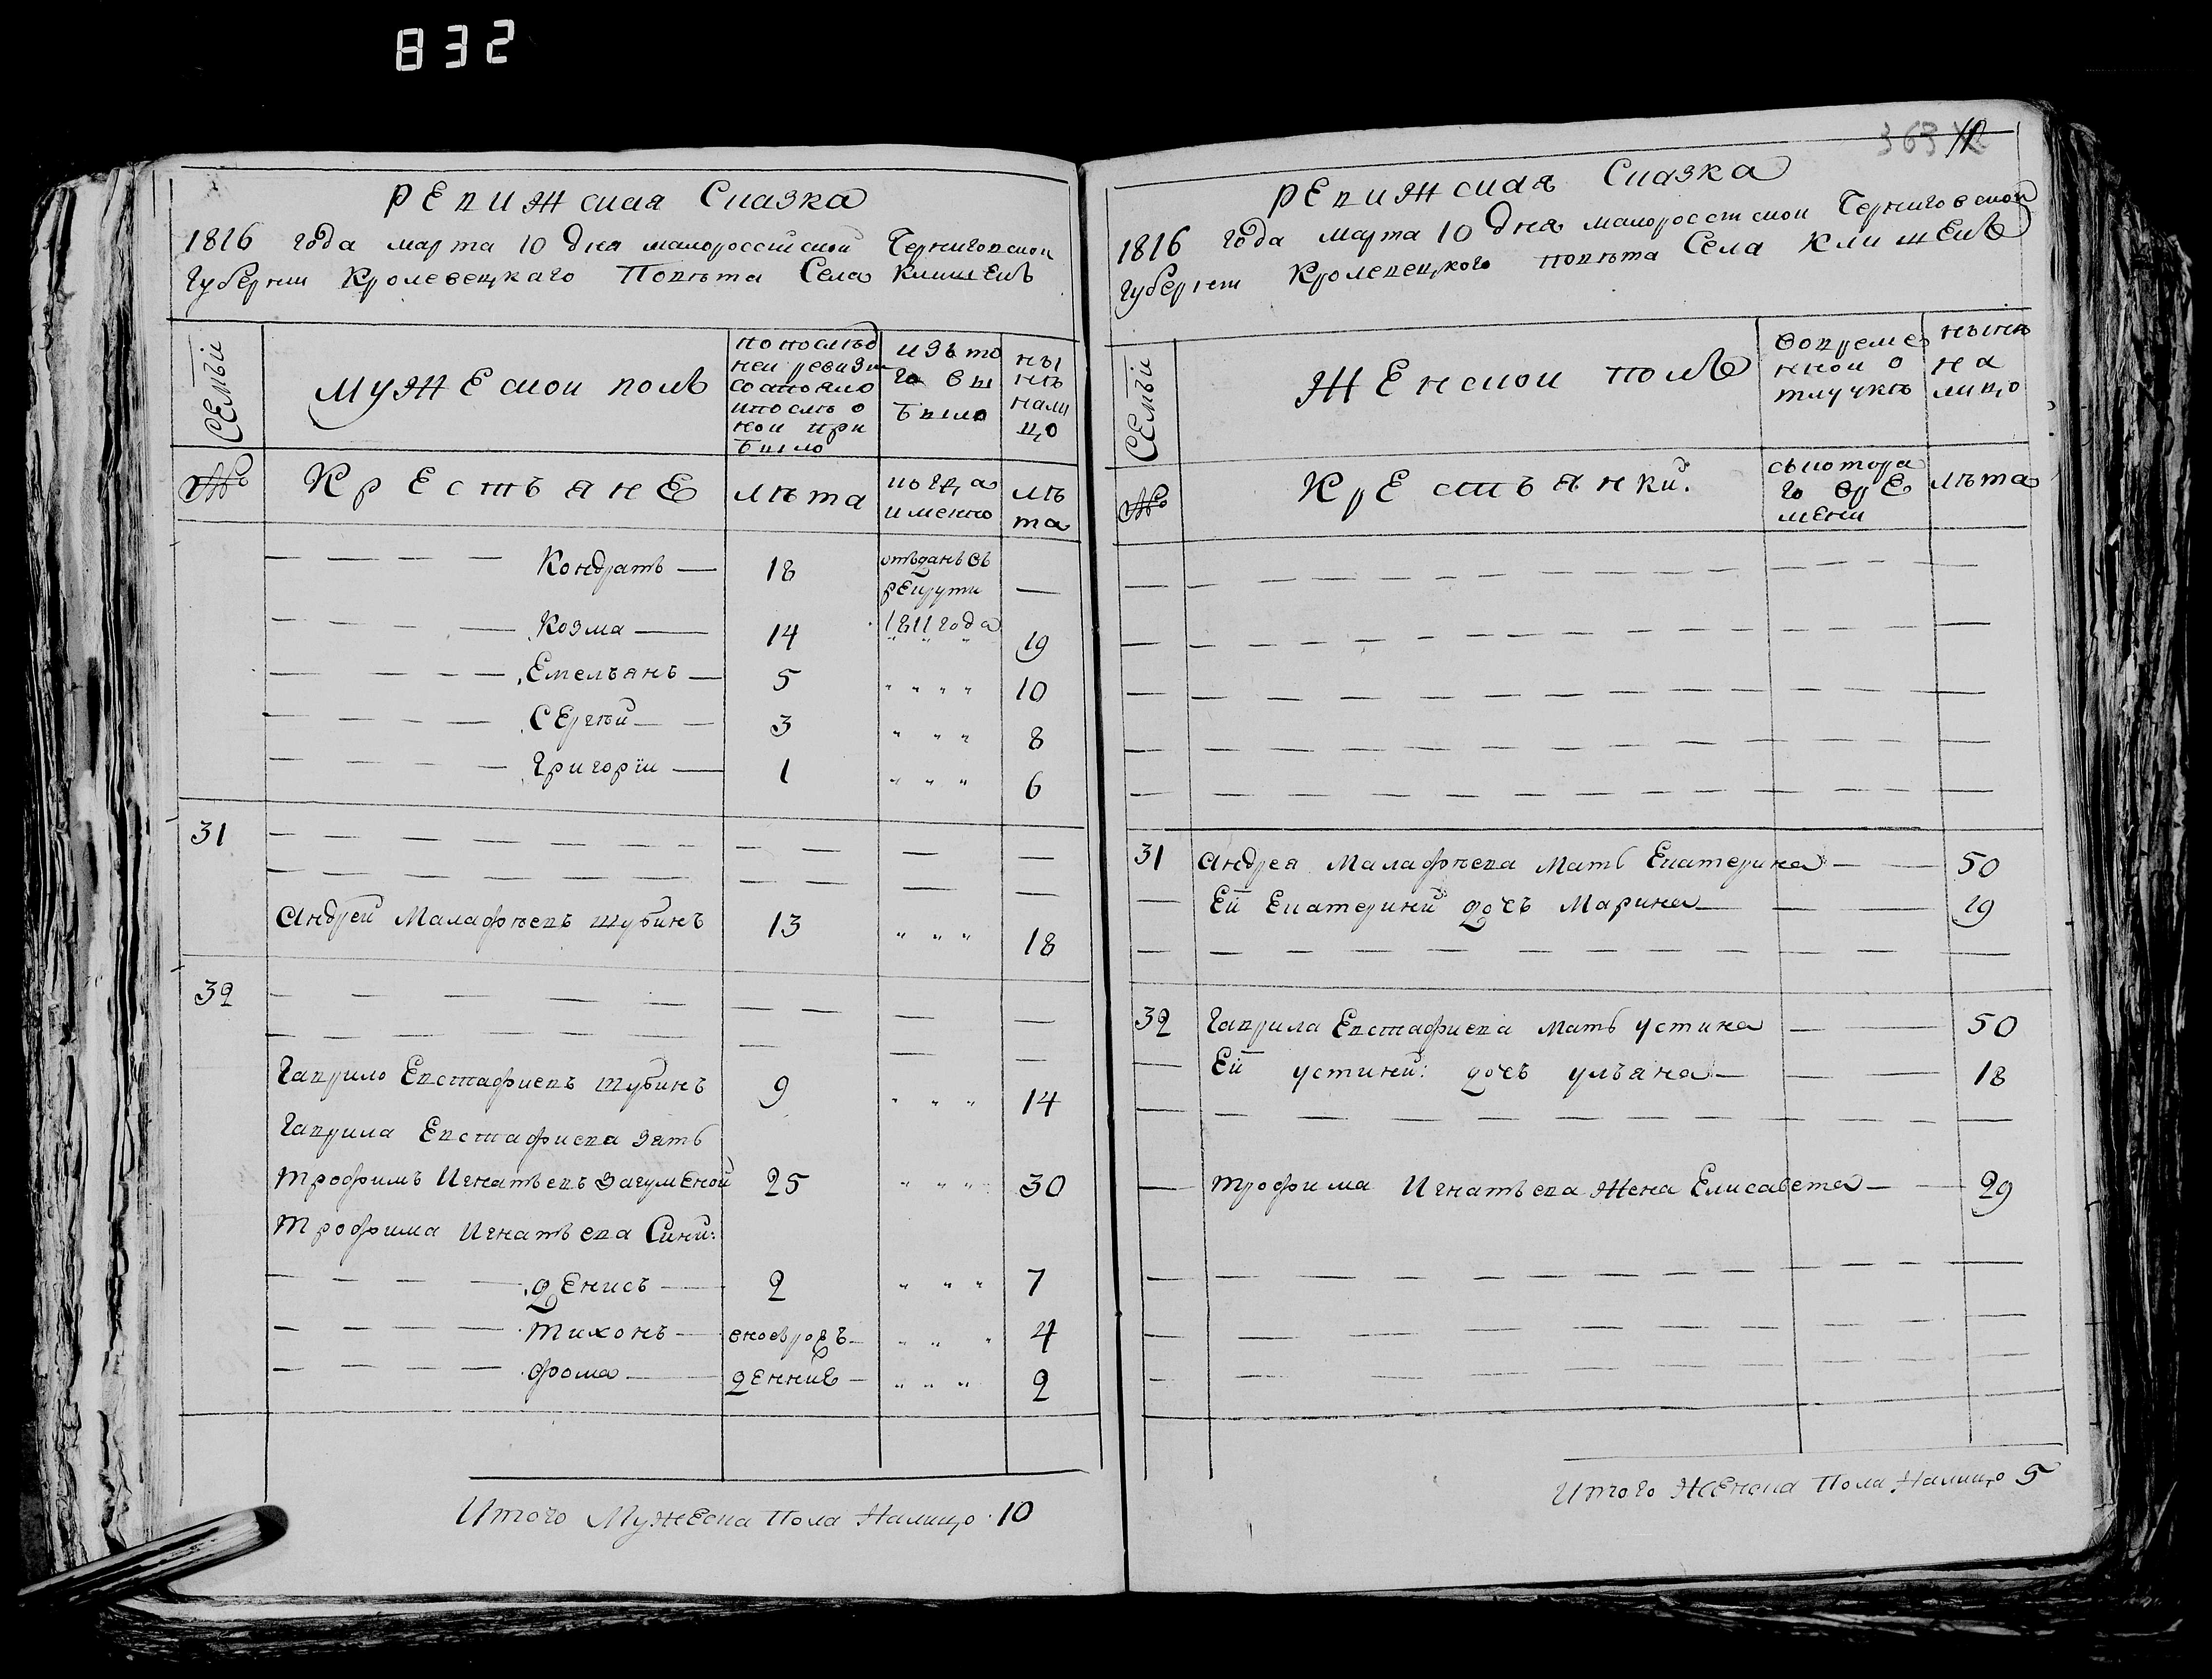 832
РЕВИЖСКАЯ СКАЗКА
1816 года марта 10 дня малороссїйской Черниговской
Губернїи Кролевецкаго Повѣта Села Клишекъ
СЕМЪИ
МУЖЕСКОЙ ПОЛЪ
по послѣд
ней ревизи
состояло
и после о
ной при
было
изъ то
го вы
было
ны
нѣ
нали
цо
№
КРЕСТЬЯНЕ
лѣта
когда
именно
лѣ
та
Кондратъ
18
отъданъ въ
рекруты
1811 года
Козма
14
19
Емельянъ
5
10
Сергѣй
3
8
Григорїи
1
6
31
Андрей Малафѣевъ шубинъ
13
18
32
Гаврило Евстафиевъ шубинъ
9
14
Гаврила Евстафиева зять
Трофимъ Игнатьевъ Загуменой
25
30
Трофима Игнатьева Сини:
Денисъ
2
7
Тихонъ
вновърод
4
Фома
денние
2
Итого Мужеска Пола Налицо 10
363
РЕВИЖСКАЯ СКАЗКА
1816 года марта 10 дня малоросстской Черниговской
губернїи Кролевецкого повѣта Села Клишекъ
СЕМЪИ
ЖЕНСКОЙ ПОЛЪ
вовремен
нной о
тлучкѣ
нынѣ
на
лицо
№
КРЕСТЬЯНКИ.
съкотора
го вре
мени
лѣта
31
Андрея Малафѣева мать Екатерина
50
Ей Екатерини дочь Марина
19
32
Гаврила Евстафиева мать Устина
50
Ей Устини: дочь ульяна
18
Трофима Игнатьева Жена Елисавета
29
Итого Женска Пола Налицо 5